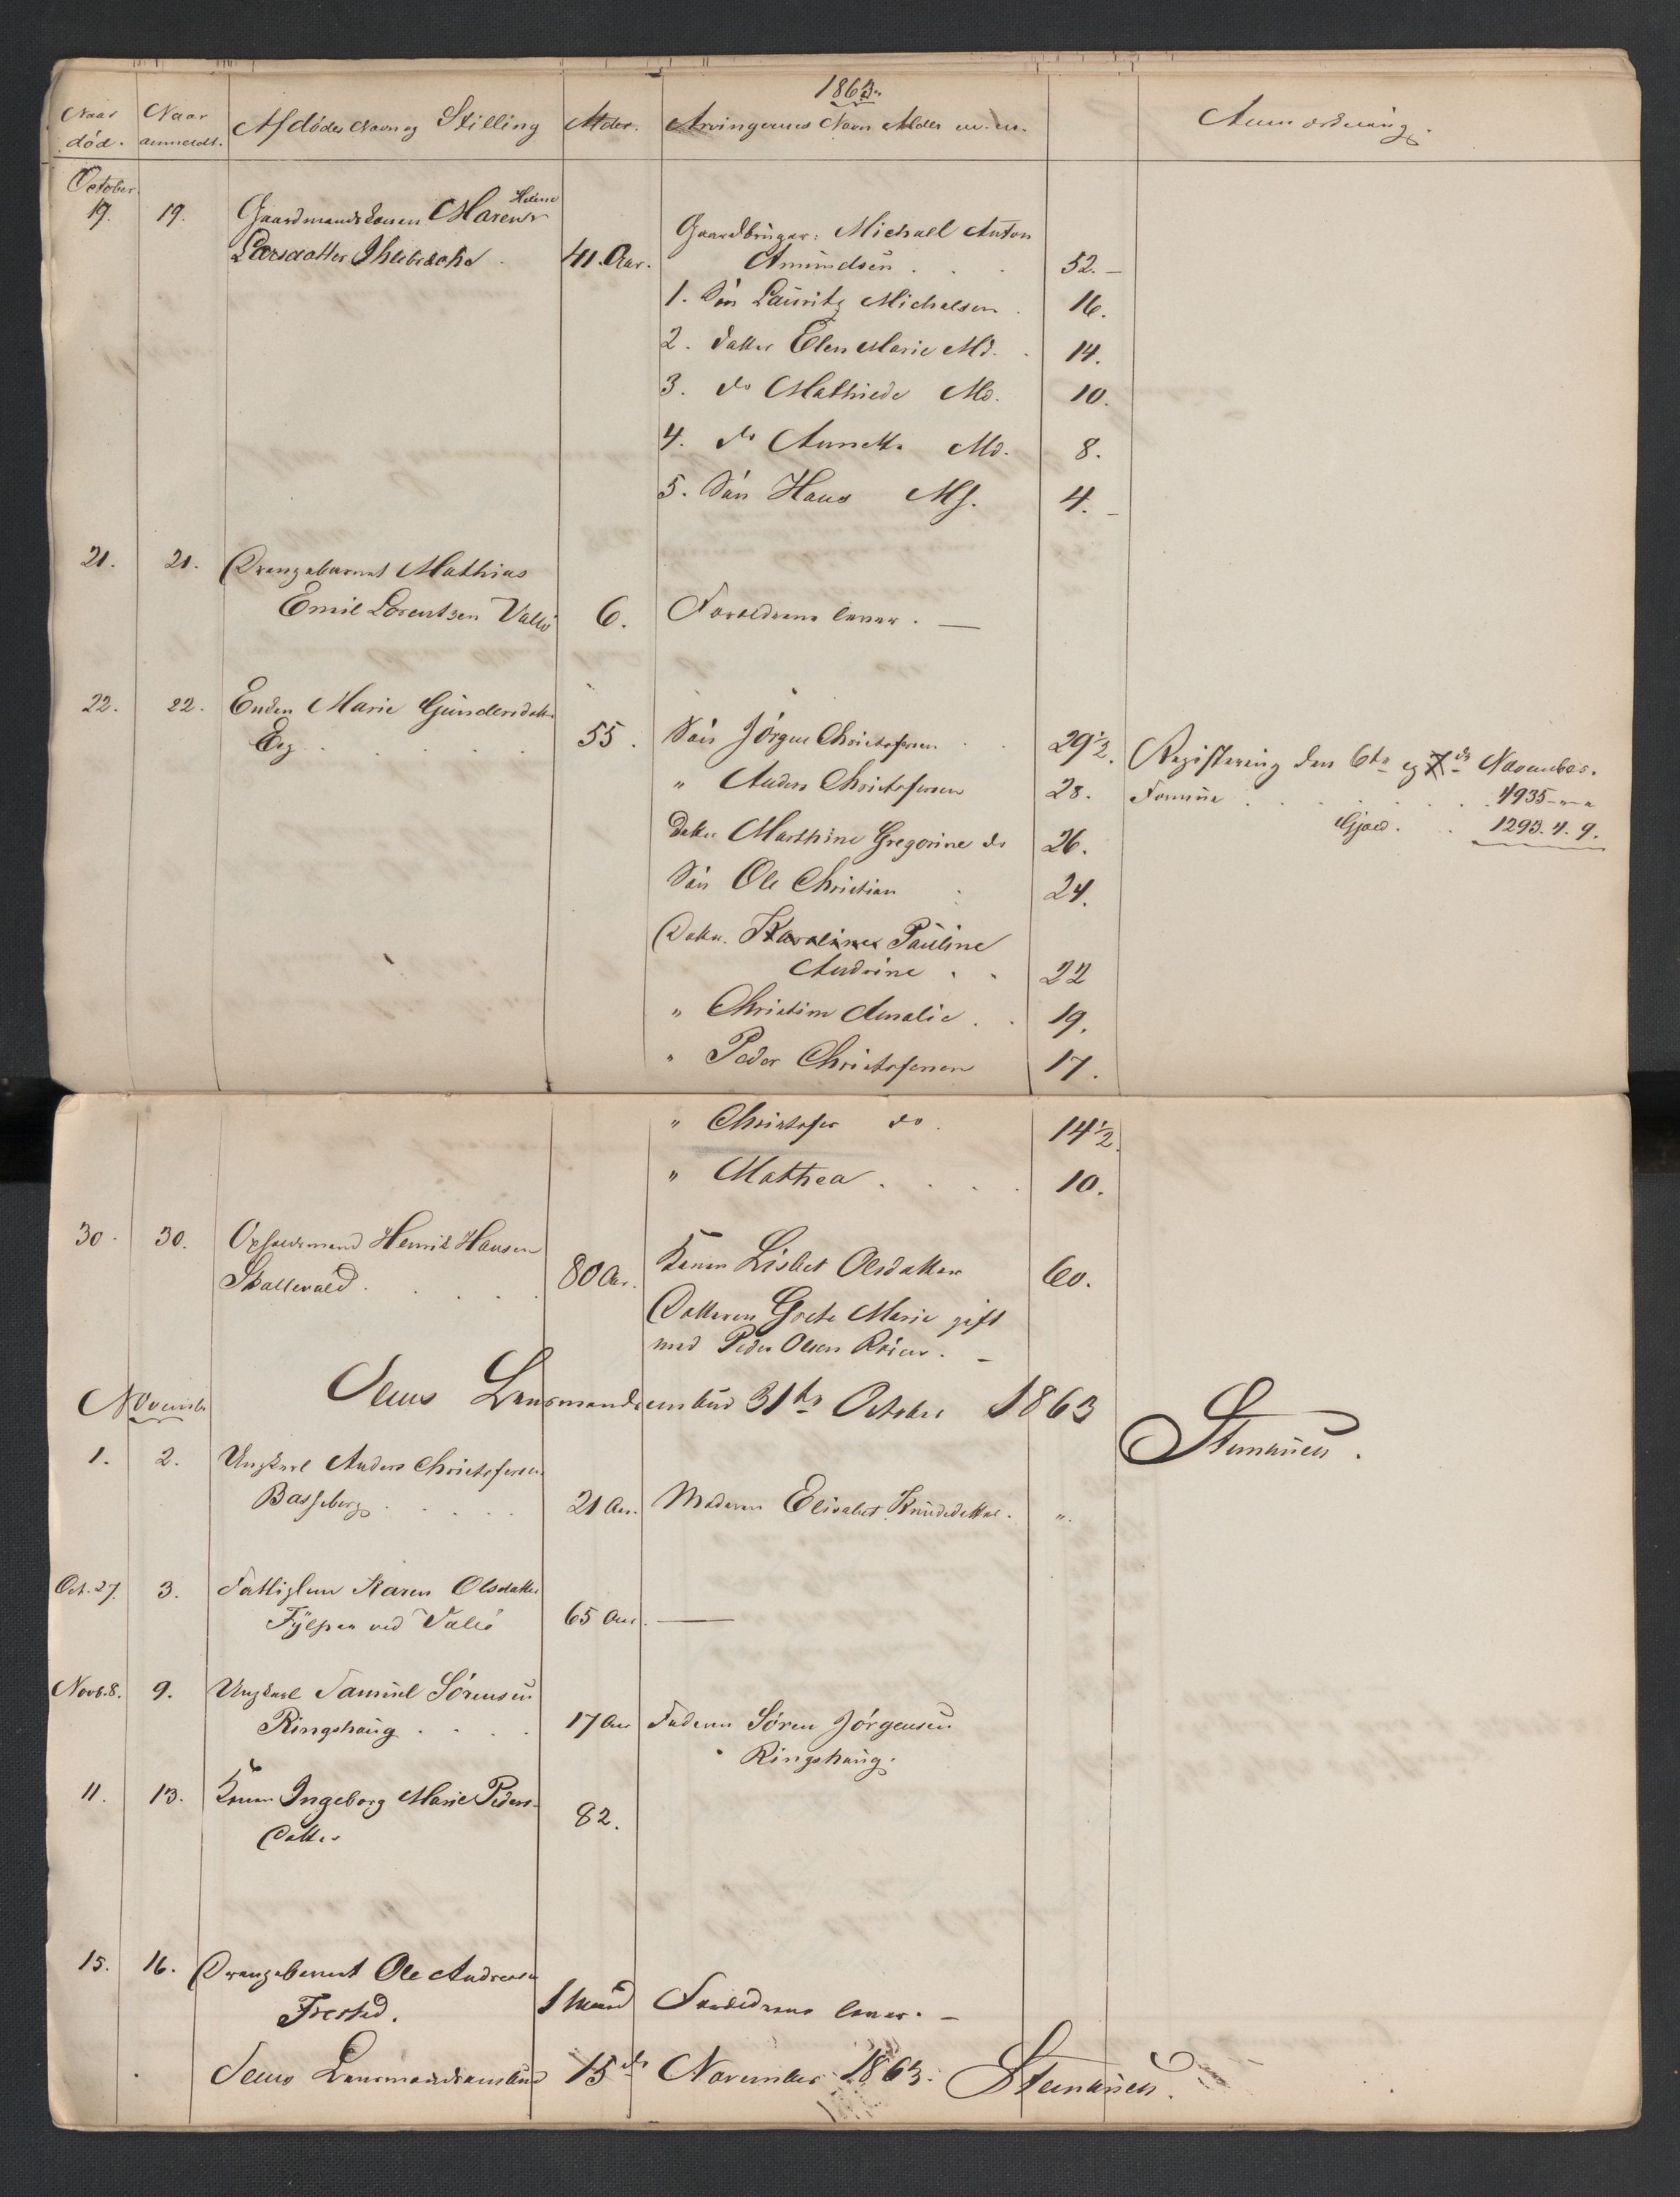 1863.
Naar død. Naar anmeldt. Afdødes Navn og Stilling Alder. Arvingernes Navn Alder m.m. Anmærkning.
October.
19. 19. Gaardmandskonen Maren Helene
Larsdatter 41. Aar.
Gaardbruger: Michael Anton
Amundsen . . . 52. —
1. Søn Lauritz Michelsen . 16.
2. Datter Elen Marie Md. . 14.
3. do Mathilde Md. 10.
4. do Annette Md. 8.
5. Søn Hans Ms. 4. —
21. 21. Drengebarnet Mathias
Emil Lorentsen Vallø 6. Forældrene lever. —
22. 22. Enken Marie Gundersdatter
Eeg . . . . . 55. Søn Jørgen Christofersen . . 29 1/2.
Registrering den 6te og 7de November.
" Anders Christofersen 28.
Formue . . . . . . 4935 - " - "
Gjæld . . 1293. 4. 9.
Datter Marthine Gregorine do 26.
Søn Ole Christian . 24.
Datter. Karoline Pauline
Andrine . . 22
" Christine Amalie . . 19.
" Peder Christofersen 17.
" Christofer do. 14 1/2.
" Mathea . . . . 10.
30. 30. Opholdsmand Henrik Hansen
Skallevald . . . . . 80 Aar. Konen Lisbet Olsdatter 60.
Datteren Grete Marie gift
med Peder Olsen . —
Sems Lensmandsembed 31te October 1863
November
1. 2. Ungkarl Anders Christofersen
Basseberg . . . . . 21 Aar. Moderen Elisabet Knudsdatter. ".
Oct. 27. 3. Fattiglem Karen Olsdatter
Fylpaa ved Valø 65 Aar. —
Novb. 8. 9. Ungkarl Samuel Sørensen
Ringshaug . . . . 17 Aar Faderen Søren Jørgensen
Ringshaug.
11. 13. Konen Ingeborg Marie Peders-
datter 82.
15. 16. Drengebarnet Ole Andreasen
Træsted. 1 Maaned Forældrene lever. —
Sems Lensmandsembed 15de November 1863.